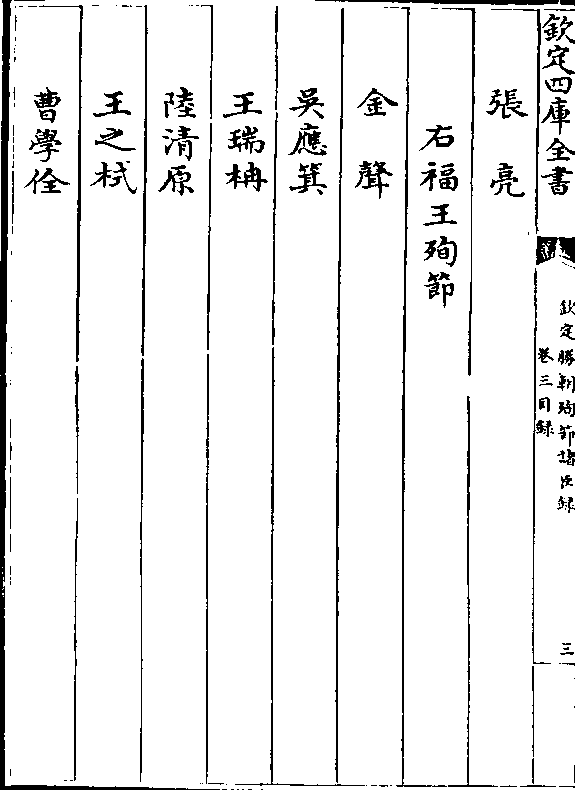 欽定四庫全書
欽定勝朝殉節諸臣録
卷三目録
三
張亮
右福王殉節
金聲
吳應箕
王瑞柟
陸清原
王之栻
曹學佺